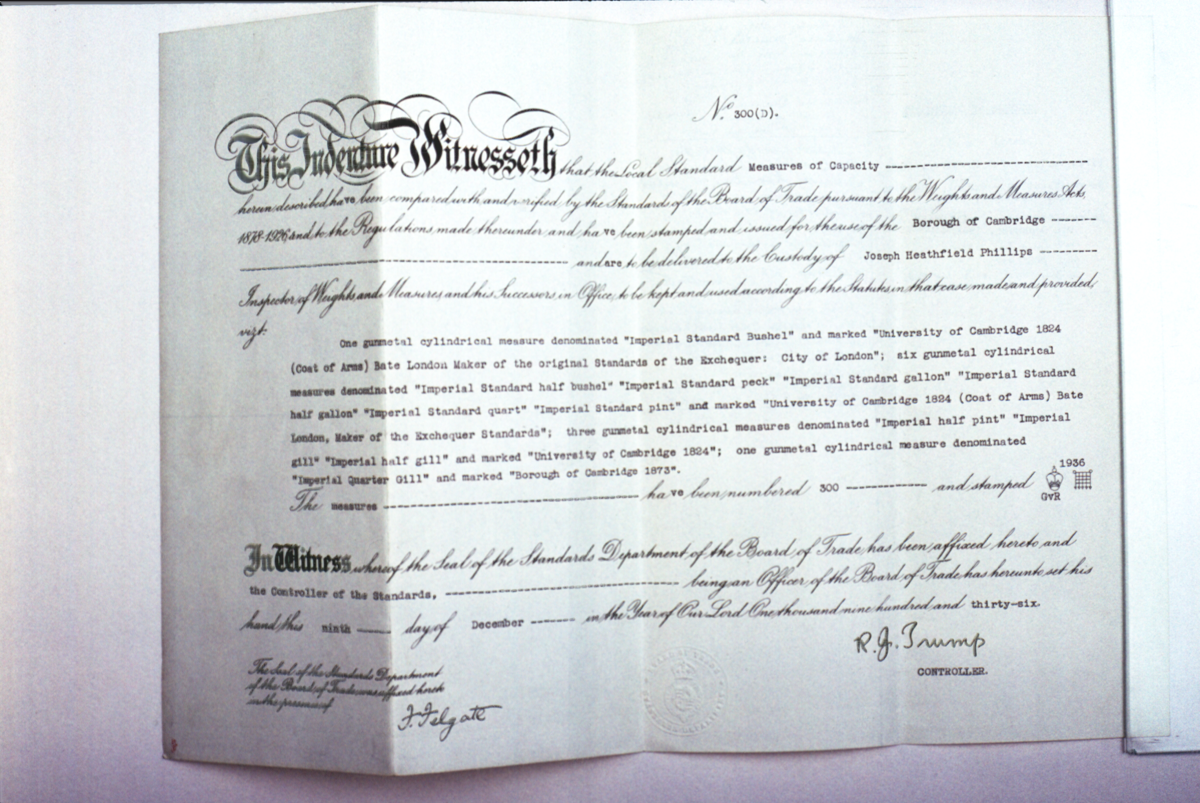 No. 300(D).
This Indenture Witnesseth that the Local Standard Measures of Capacity
herein described have been compared with and verified by the Standards of the Board of Trade pursuant to the Weights and Measures Acts,
1878-1926 and to the Regulations made thereunder and have been stamped and issued for the use of the Borough of Cambridge
and are to be delivered to the Custody of Joseph Heathfield Phillips
Inspector of Weights and Measures and his Successors in Office, to be kept and used according to the Statutes in that case made and provided,
vizt:
One gunmetal cylindrical measure denominated "Imperial Standard Bushel" and marked "University of Cambridge 1824
(Coat of Arms) Bate London Maker of the original Standards of the Exchequer: City of London"; six gunmetal cylindrical
measures denominated "Imperial Standard half bushel" "Imperial Standard peck" "Imperial Standard gallon" "Imperial Standard
half gallon" "Imperial Standard quart" "Imperial Standard pint" and marked "University of Cambridge 1824 (Coat of Arms) Bate
London, Maker of the Exchequer Standards"; three gunmetal cylindrical measures denominated "Imperial half pint" "Imperial
gill" "Imperial half gill" and marked "University of Cambridge 1824"; one gunmetal cylindrical measure denominated
"Imperial Quarter Gill" and marked "Borough of Cambridge 1873".
The measures have been numbered 300 and stamped GvR 1936
In Witness whereof the Seal of the Standards Department of the Board of Trade has been affixed hereto and
the Controller of the Standards, being an Officer of the Board of Trade has hereunto set his
hand this ninth day of December in the Year of Our Lord One thousand nine hundred and thirty-six.
R.J. Trump
CONTROLLER.
The Seal of the Standards Department
of the Board of Trade was affixed hereto
in the presence of
F. Felgate